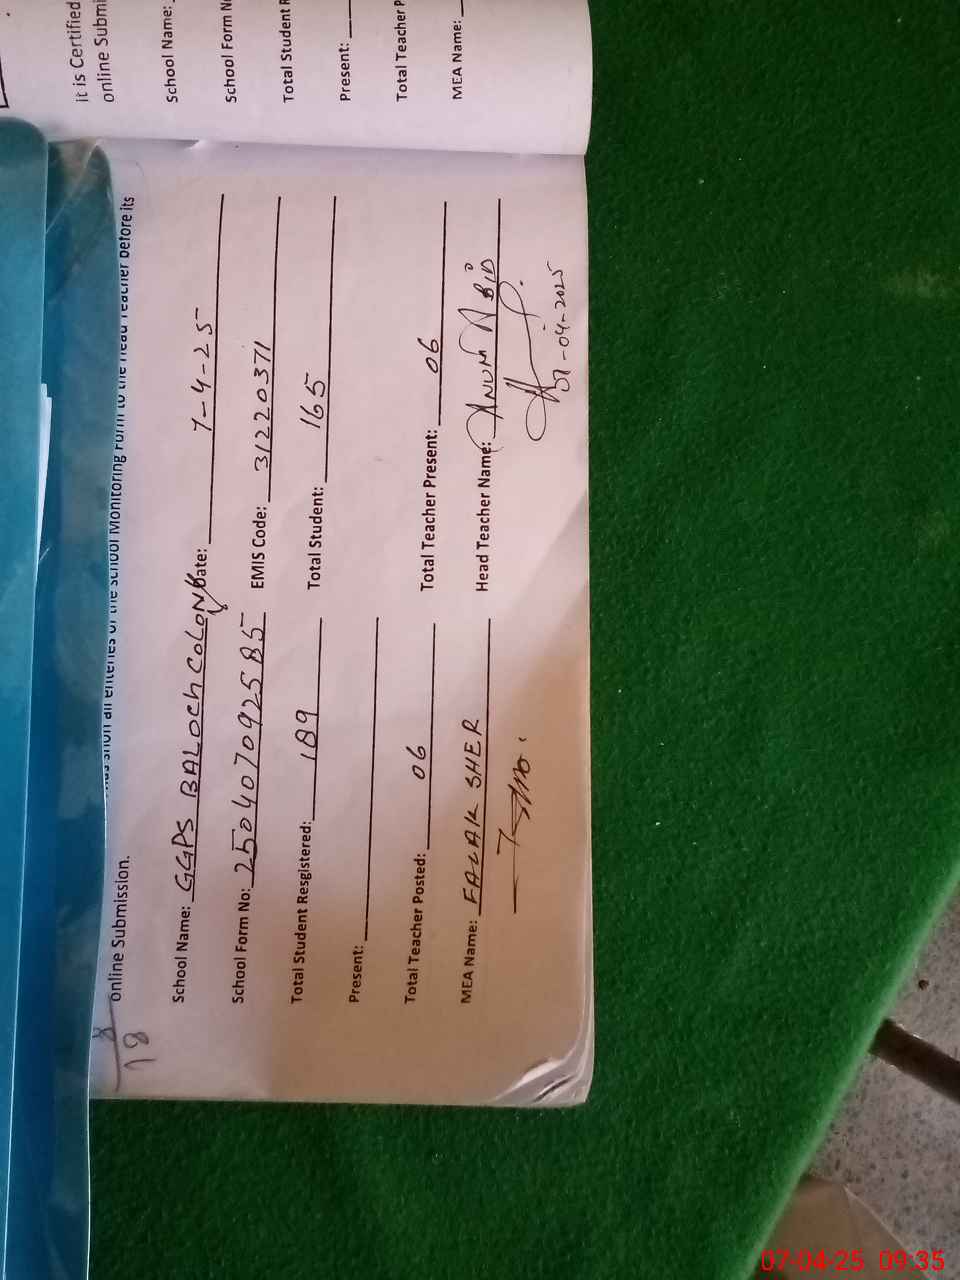 it is Certified
online Submi
School Name:
School Form N
Total Student R
Present:
Total Teacher P
MEA Name:
all enteries of the School Monitoring Form to the Head Teacher before its
online Submission.
8
18
School Name: GGPS BALOCH COLONY Date: 7-4-25
School Form No: 250407092585 EMIS Code: 31220371
Total Student Resgistered: 189 Total Student: 165
Present:
Total Teacher Posted: 06 Total Teacher Present: 06
MEA Name: FALAK SHER Head Teacher Name: ANUM ABID
07-04-2025
07-04-25 09:35